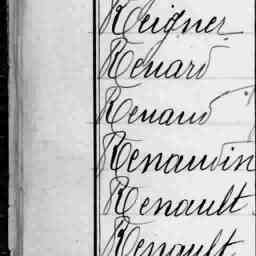 Reigner
Renard
Renaud
Renaudin
Renault
Renault